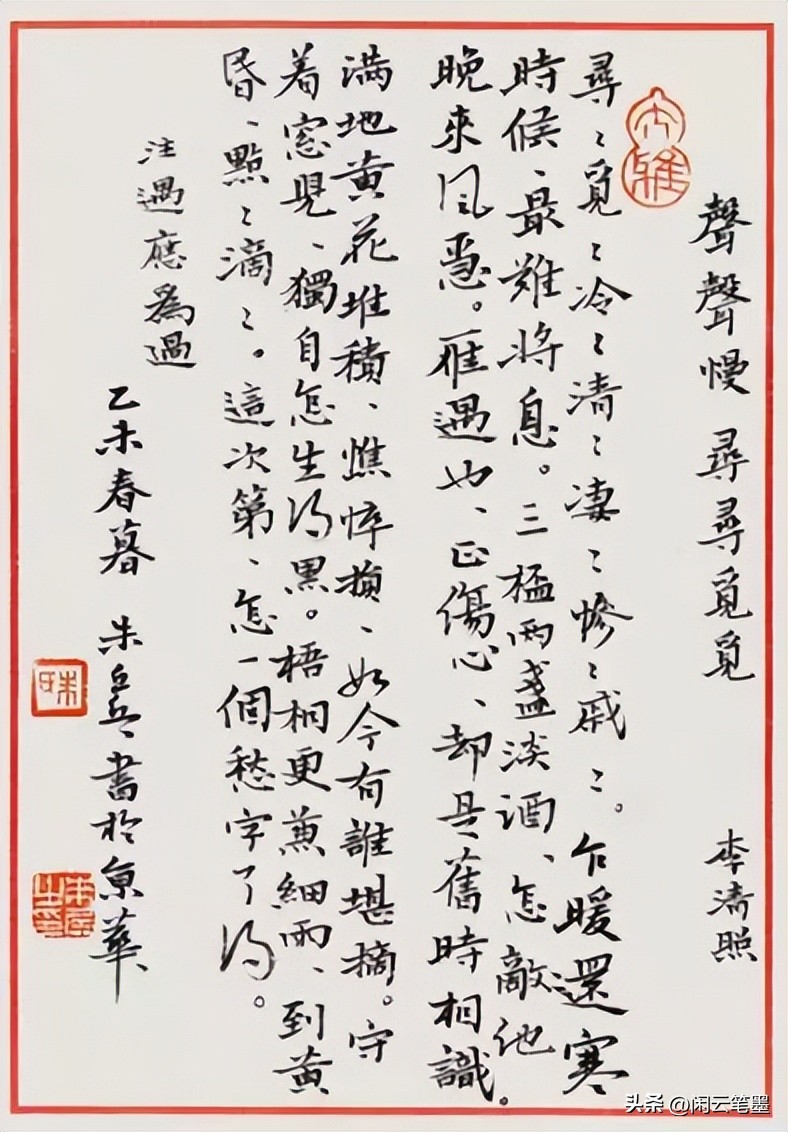 聲聲慢 尋尋覓覓 李清照
大雅
尋〻覓〻冷〻清〻凄〻惨〻戚〻。乍暖還寒
時候、最難將息。三桮兩盞淡酒、怎敵他
晚來风急。雁遇也、正傷心、却是舊時相識。
满地黄花堆積、憔悴損、如今有誰堪摘。守
着窓兒、獨自怎生得黑。梧桐更兼細雨、到黄
昏、點〻滴〻。這次第、怎一個愁字了得。
注遇應為過
乙未春暮 朱 書於京華
头条 @闲云笔墨